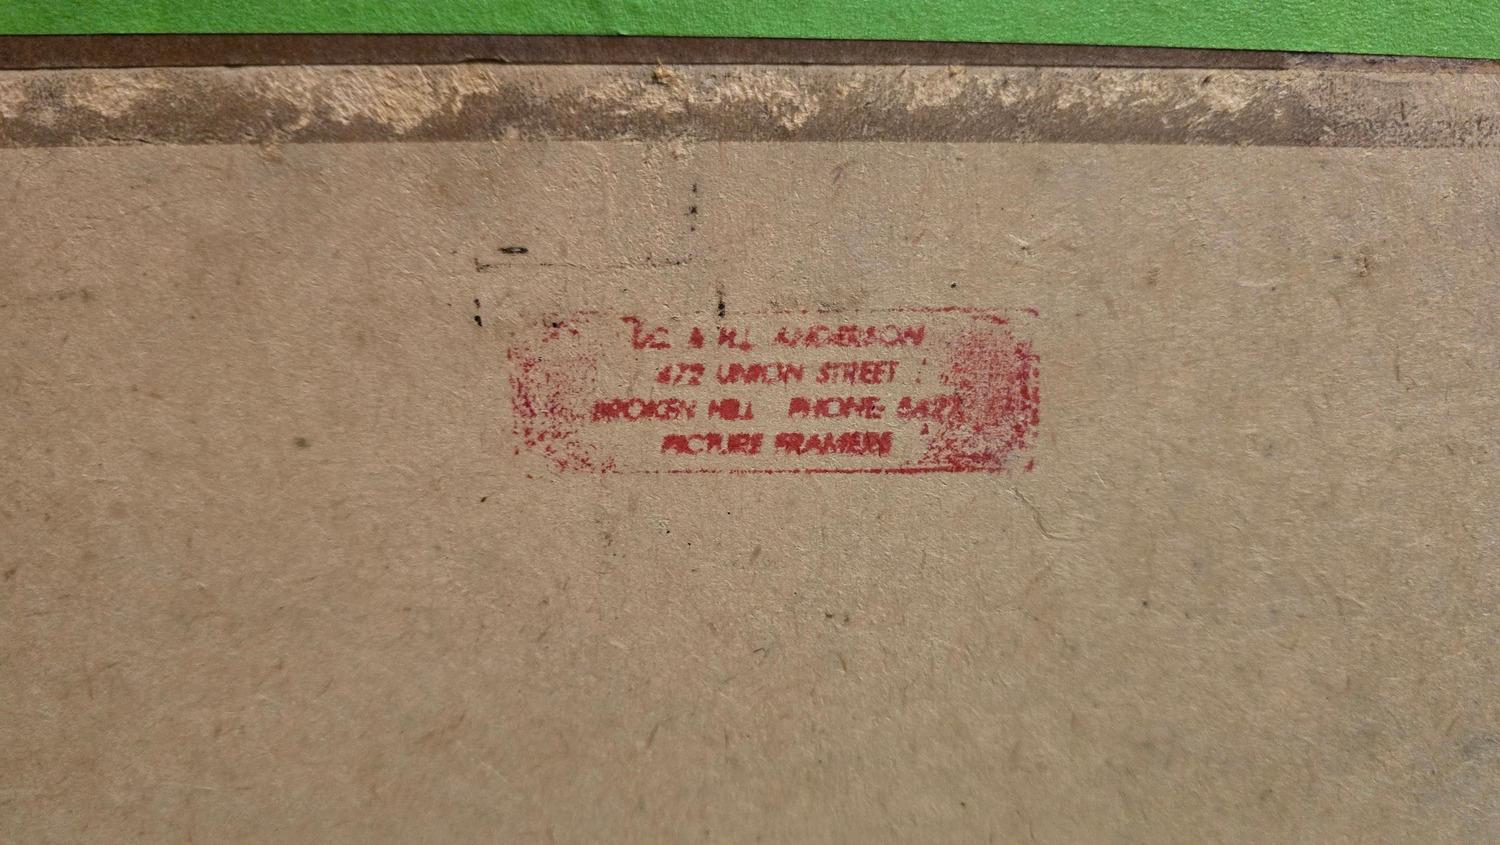 & H.J. ANDERSON
472 UNION STREET
BROKEN HILL PHONE:
PICTURE FRAMERS